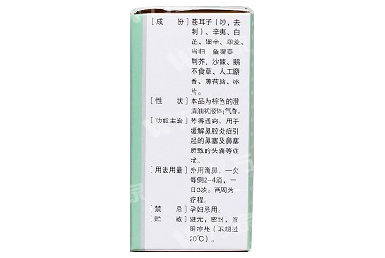 [成 份] 苍耳子(炒,去
刺)、辛夷、白
芷、细辛、
当归、鱼腥草
荆芥、沙棘、鹅
不食草、人工麝
香、薄荷脑、冰
片。
[性 状] 本品为棕色的澄
清油状液体;气香。
[功能主治] 芳香通窍。用于
缓解鼻腔炎症引
起的鼻塞及鼻塞
所致的头痛等症
状。
[用法用量] 外用滴鼻。一次
每侧2-4滴,一
日3次。两周为一
疗程。
[禁 忌] 孕妇忌用。
[贮 藏] 避光,密封,置
阴凉处(不超过
20℃)。